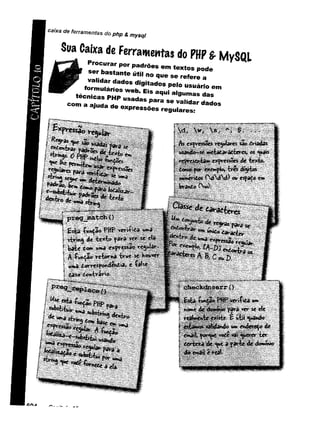 caixa de ferramentas do php & mysql
CAPÍTULO 10
Sua Caixa de Ferramentas do PHP & MySQL
Procurar por padrões em textos pode
ser bastante útil no que se refere a
validar dados digitados pelo usuário em
formulários web. Eis aqui algumas das
técnicas PHP usadas para se validar dados
com a ajuda de expressões regulares:
Expressão regular
Regras que são usadas para se
encontrar padrões de texto em
strings. O PHP inclui funções
que lhe permitem usar expressões
regulares para
string segue um determinado
padrão, bem como para localizar-
e-substituir padrões de texto
dentro de uma string.
\d, \w, \s, ^, $, ...
As expressões regulares são criadas
usando-se metacaracteres, os quais
representam expressões de texto,
como por exemplo, três dígitos
numéricos (\d\d\d) ou espaço em
branco (\s).
Classe de caracteres
Um conjunto de regras para se
encontrar um único caracter
dentro de uma expressão regular.
Por exemplo, [A-D] encontra os
caracteres A, B, C ou D.
preg_match()
Esta função PHP verifica uma
string de texto para ver se ela
bate com uma expressão regular.
A função retorna true se houver
uma correspondência, e false
caso contrário.
preg_replace()
Use esta função PHP para
substituir uma substring dentro
de uma string com base em uma
expressão regular. A função
localiza-e-substitui usando
uma expressão regular para a
localização e substitui por uma
string que você fornece a ela
checkdnsrr()
Esta função PHP verifica um
nome de domínio para ver se ele
realmente existe. É útil quando
estamos validando um endereço de
email, porque você vai querer ter
certeza de que a parte de domínio
do email é real.